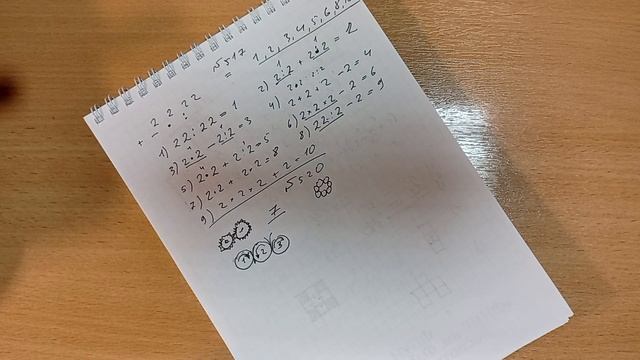 №517
= 1, 2, 3, 4, 5, 6, 8, 10
2 2 2 2
+ - · :
1) 22:22=1
2) 2:2+2:2=2
3) 2·2-2:2=3
4) 2+2+2-2=4
5) 2·2+2:2=5
6) 2·2·2-2=6
7) 2·2+2·2=8
8) 22:2-2=9
9) 2·2·2+2=10
№520
7
1 2 3